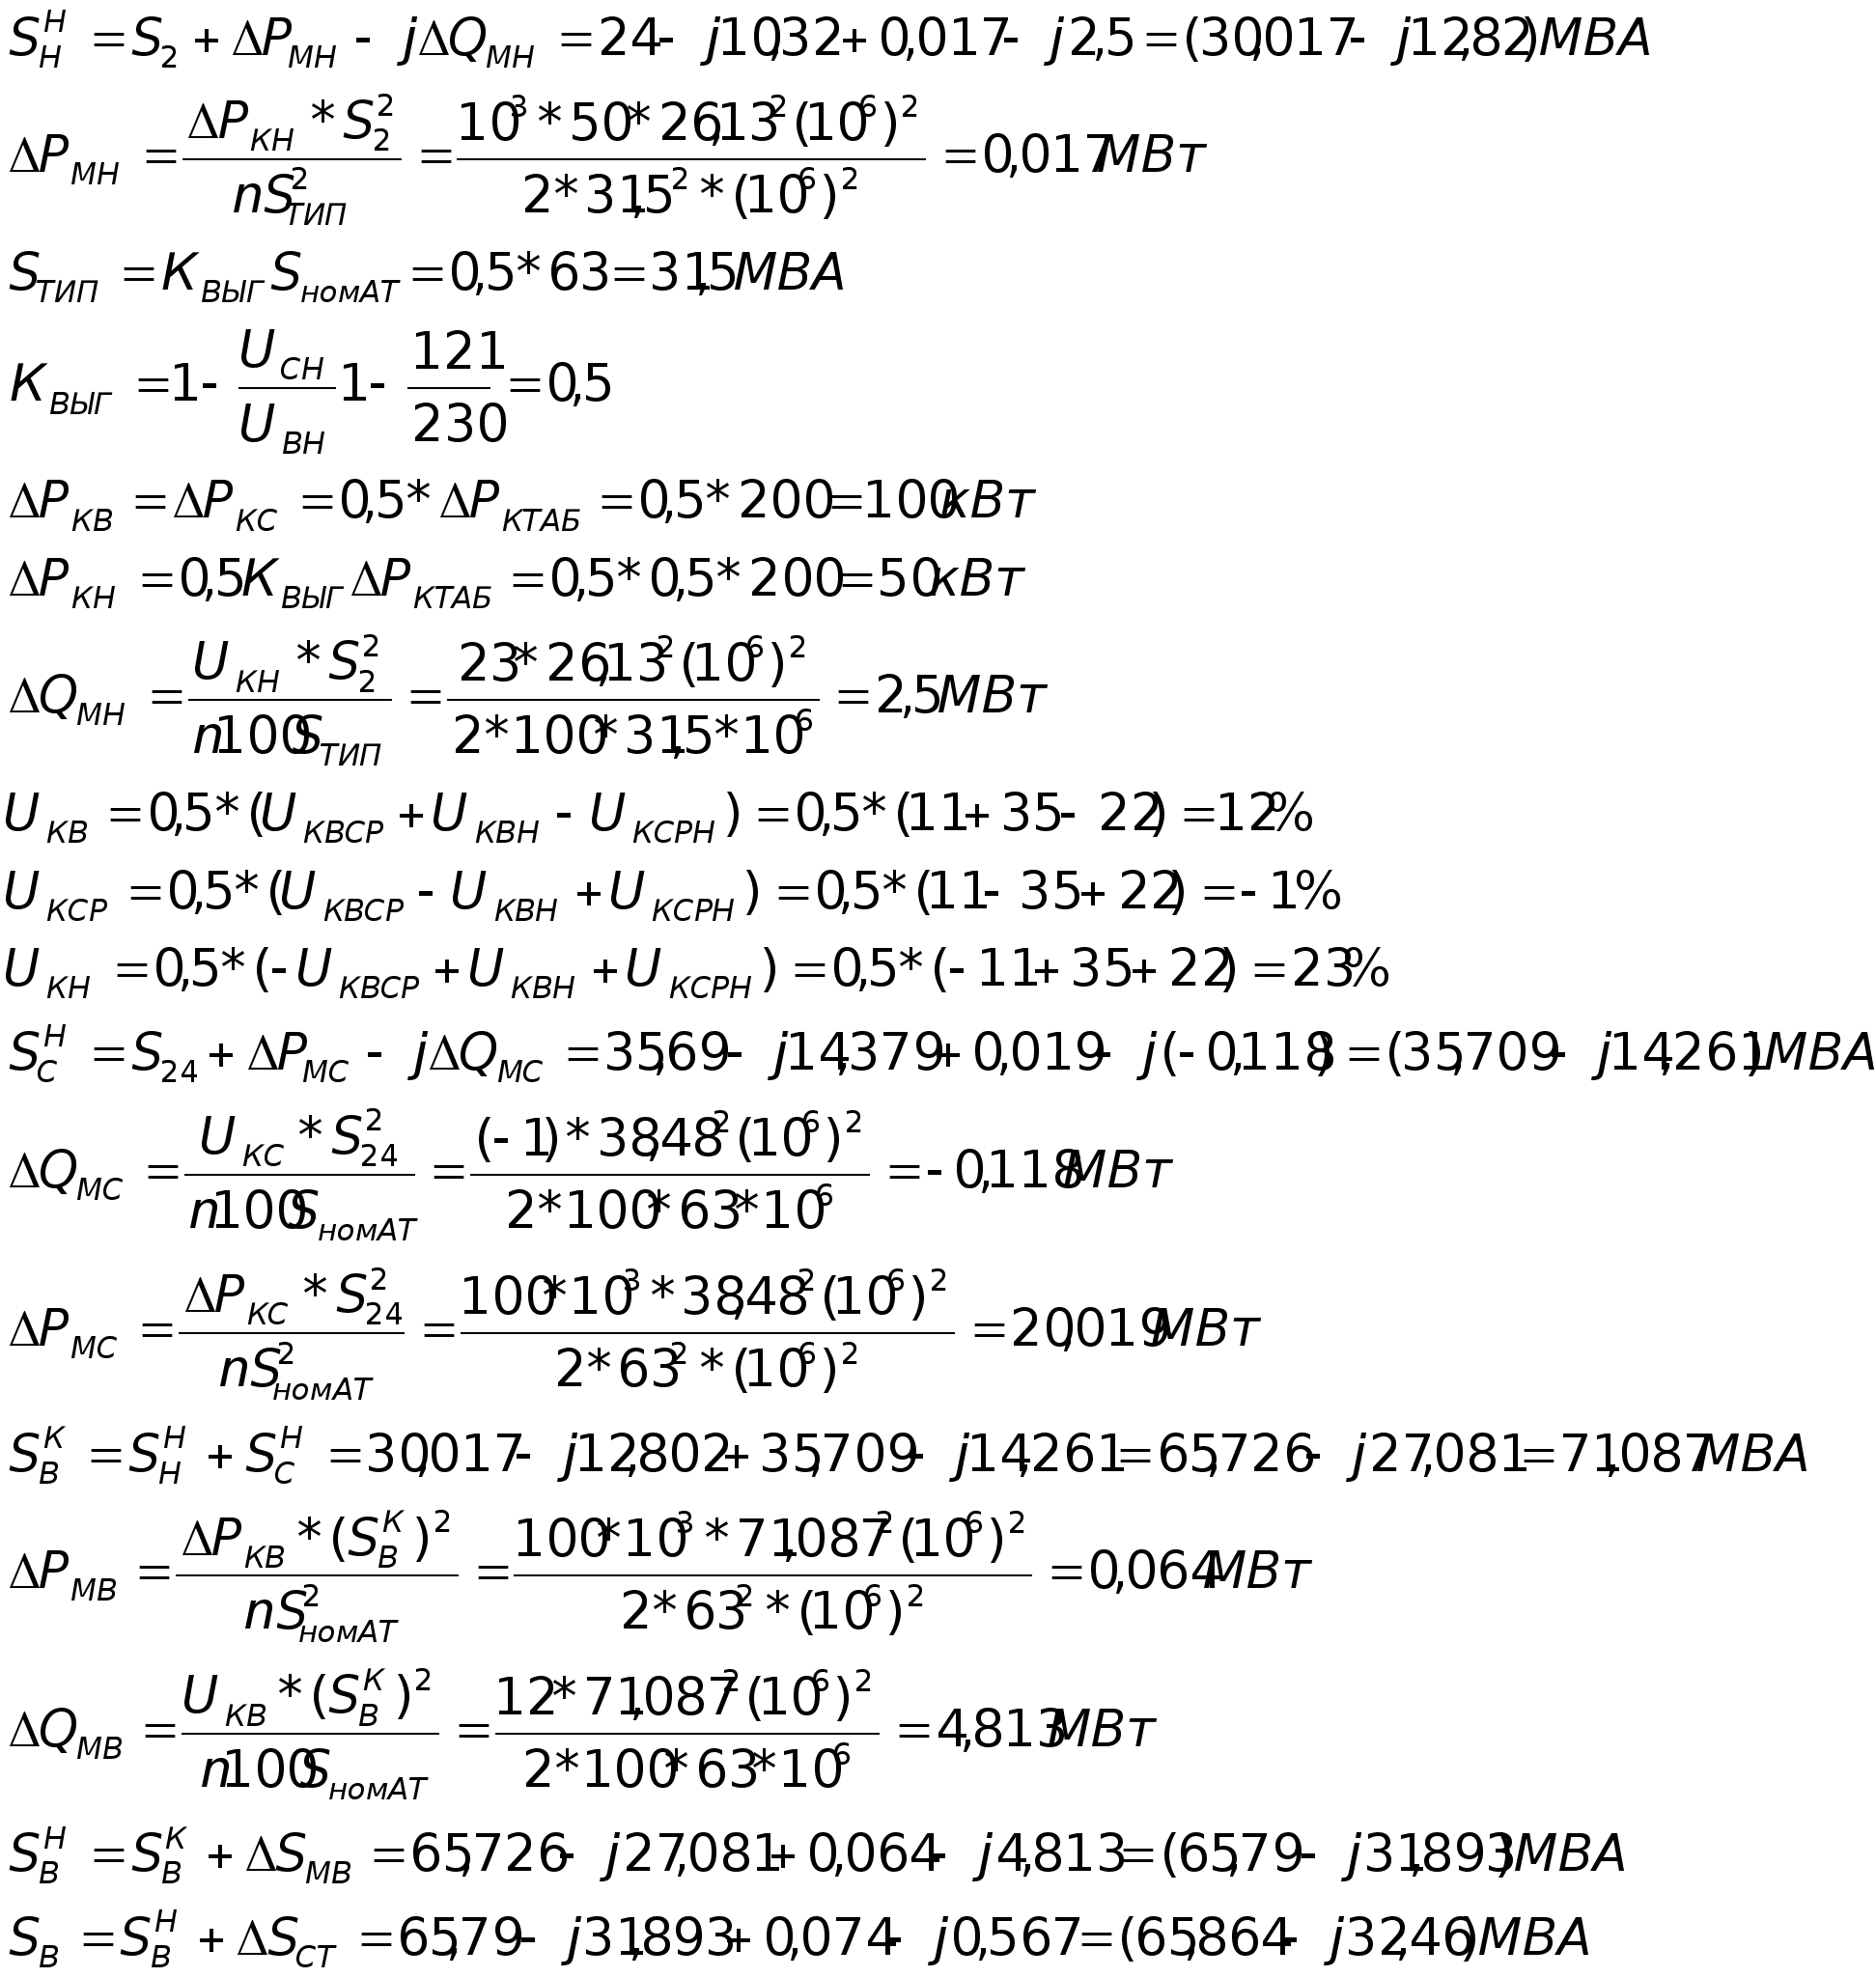 S_Н^Н = S_2 + ΔP_МН - jΔQ_МН = 24 - j10,32 + 0,017 - j2,5 = (30,017 - j12,82)МВА
ΔP_МН = ΔP_КН * S_2^2 / nS_ТИП^2 = 10^3 * 50 * 26,13^2 (10^6)^2 / 2 * 31,5^2 * (10^6)^2 = 0,017МВт
S_ТИП = К_ВЫГ S_номАТ = 0,5 * 63 = 31,5МВА
К_ВЫГ = 1 - U_СН / U_ВН 1 - 121 / 230 = 0,5
ΔP_КВ = ΔP_КС = 0,5 * ΔP_КТАБ = 0,5 * 200 = 100кВт
ΔP_КН = 0,5К_ВЫГ ΔP_КТАБ = 0,5 * 0,5 * 200 = 50кВт
ΔQ_МН = U_КН * S_2^2 / n100S_ТИП = 23 * 26,13^2 (10^6)^2 / 2 * 100 * 31,5 * 10^6 = 2,5МВт
U_КВ = 0,5 * (U_КВСР + U_КВН - U_КСРН) = 0,5 * (11 + 35 - 22) = 12%
U_КСР = 0,5 * (U_КВСР - U_КВН + U_КСРН) = 0,5 * (11 - 35 + 22) = -1%
U_КН = 0,5 * (-U_КВСР + U_КВН + U_КСРН) = 0,5 * (-11 + 35 + 22) = 23%
S_С^Н = S_24 + ΔP_МС - jΔQ_МС = 35,69 - j14,379 + 0,019 - j(-0,118) = (35,709 - j14,261)МВА
ΔQ_МС = U_КС * S_24^2 / n100S_номАТ = (-1) * 38,48^2 (10^6)^2 / 2 * 100 * 63 * 10^6 = -0,118МВт
ΔP_МС = ΔP_КС * S_24^2 / nS_номАТ^2 = 100 * 10^3 * 38,48^2 (10^6)^2 / 2 * 63^2 * (10^6)^2 = 20,019МВт
S_В^К = S_Н^Н + S_С^Н = 30,017 - j12,802 + 35,709 - j14,261 = 65,726 - j27,081 = 71,087МВА
ΔP_МВ = ΔP_КВ * (S_В^К)^2 / nS_номАТ^2 = 100 * 10^3 * 71,087^2 (10^6)^2 / 2 * 63^2 * (10^6)^2 = 0,064МВт
ΔQ_МВ = U_КВ * (S_В^К)^2 / n100S_номАТ = 12 * 71,087^2 (10^6)^2 / 2 * 100 * 63 * 10^6 = 4,813МВт
S_В^Н = S_В^К + ΔS_МВ = 65,726 - j27,081 + 0,064 - j4,813 = (65,79 - j31,893)МВА
S_В = S_В^Н + ΔS_СТ = 65,79 - j31,893 + 0,074 - j0,567 = (65,864 - j32,46)МВА